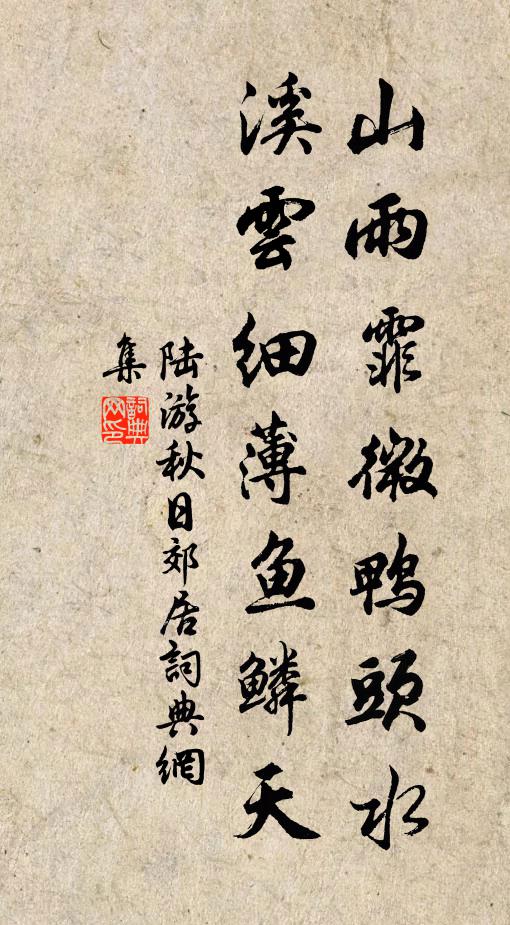 山雨霏微鸭頭水
溪雲细薄鱼鳞天
陆游秋日郊居詞典網
集
詞典网印